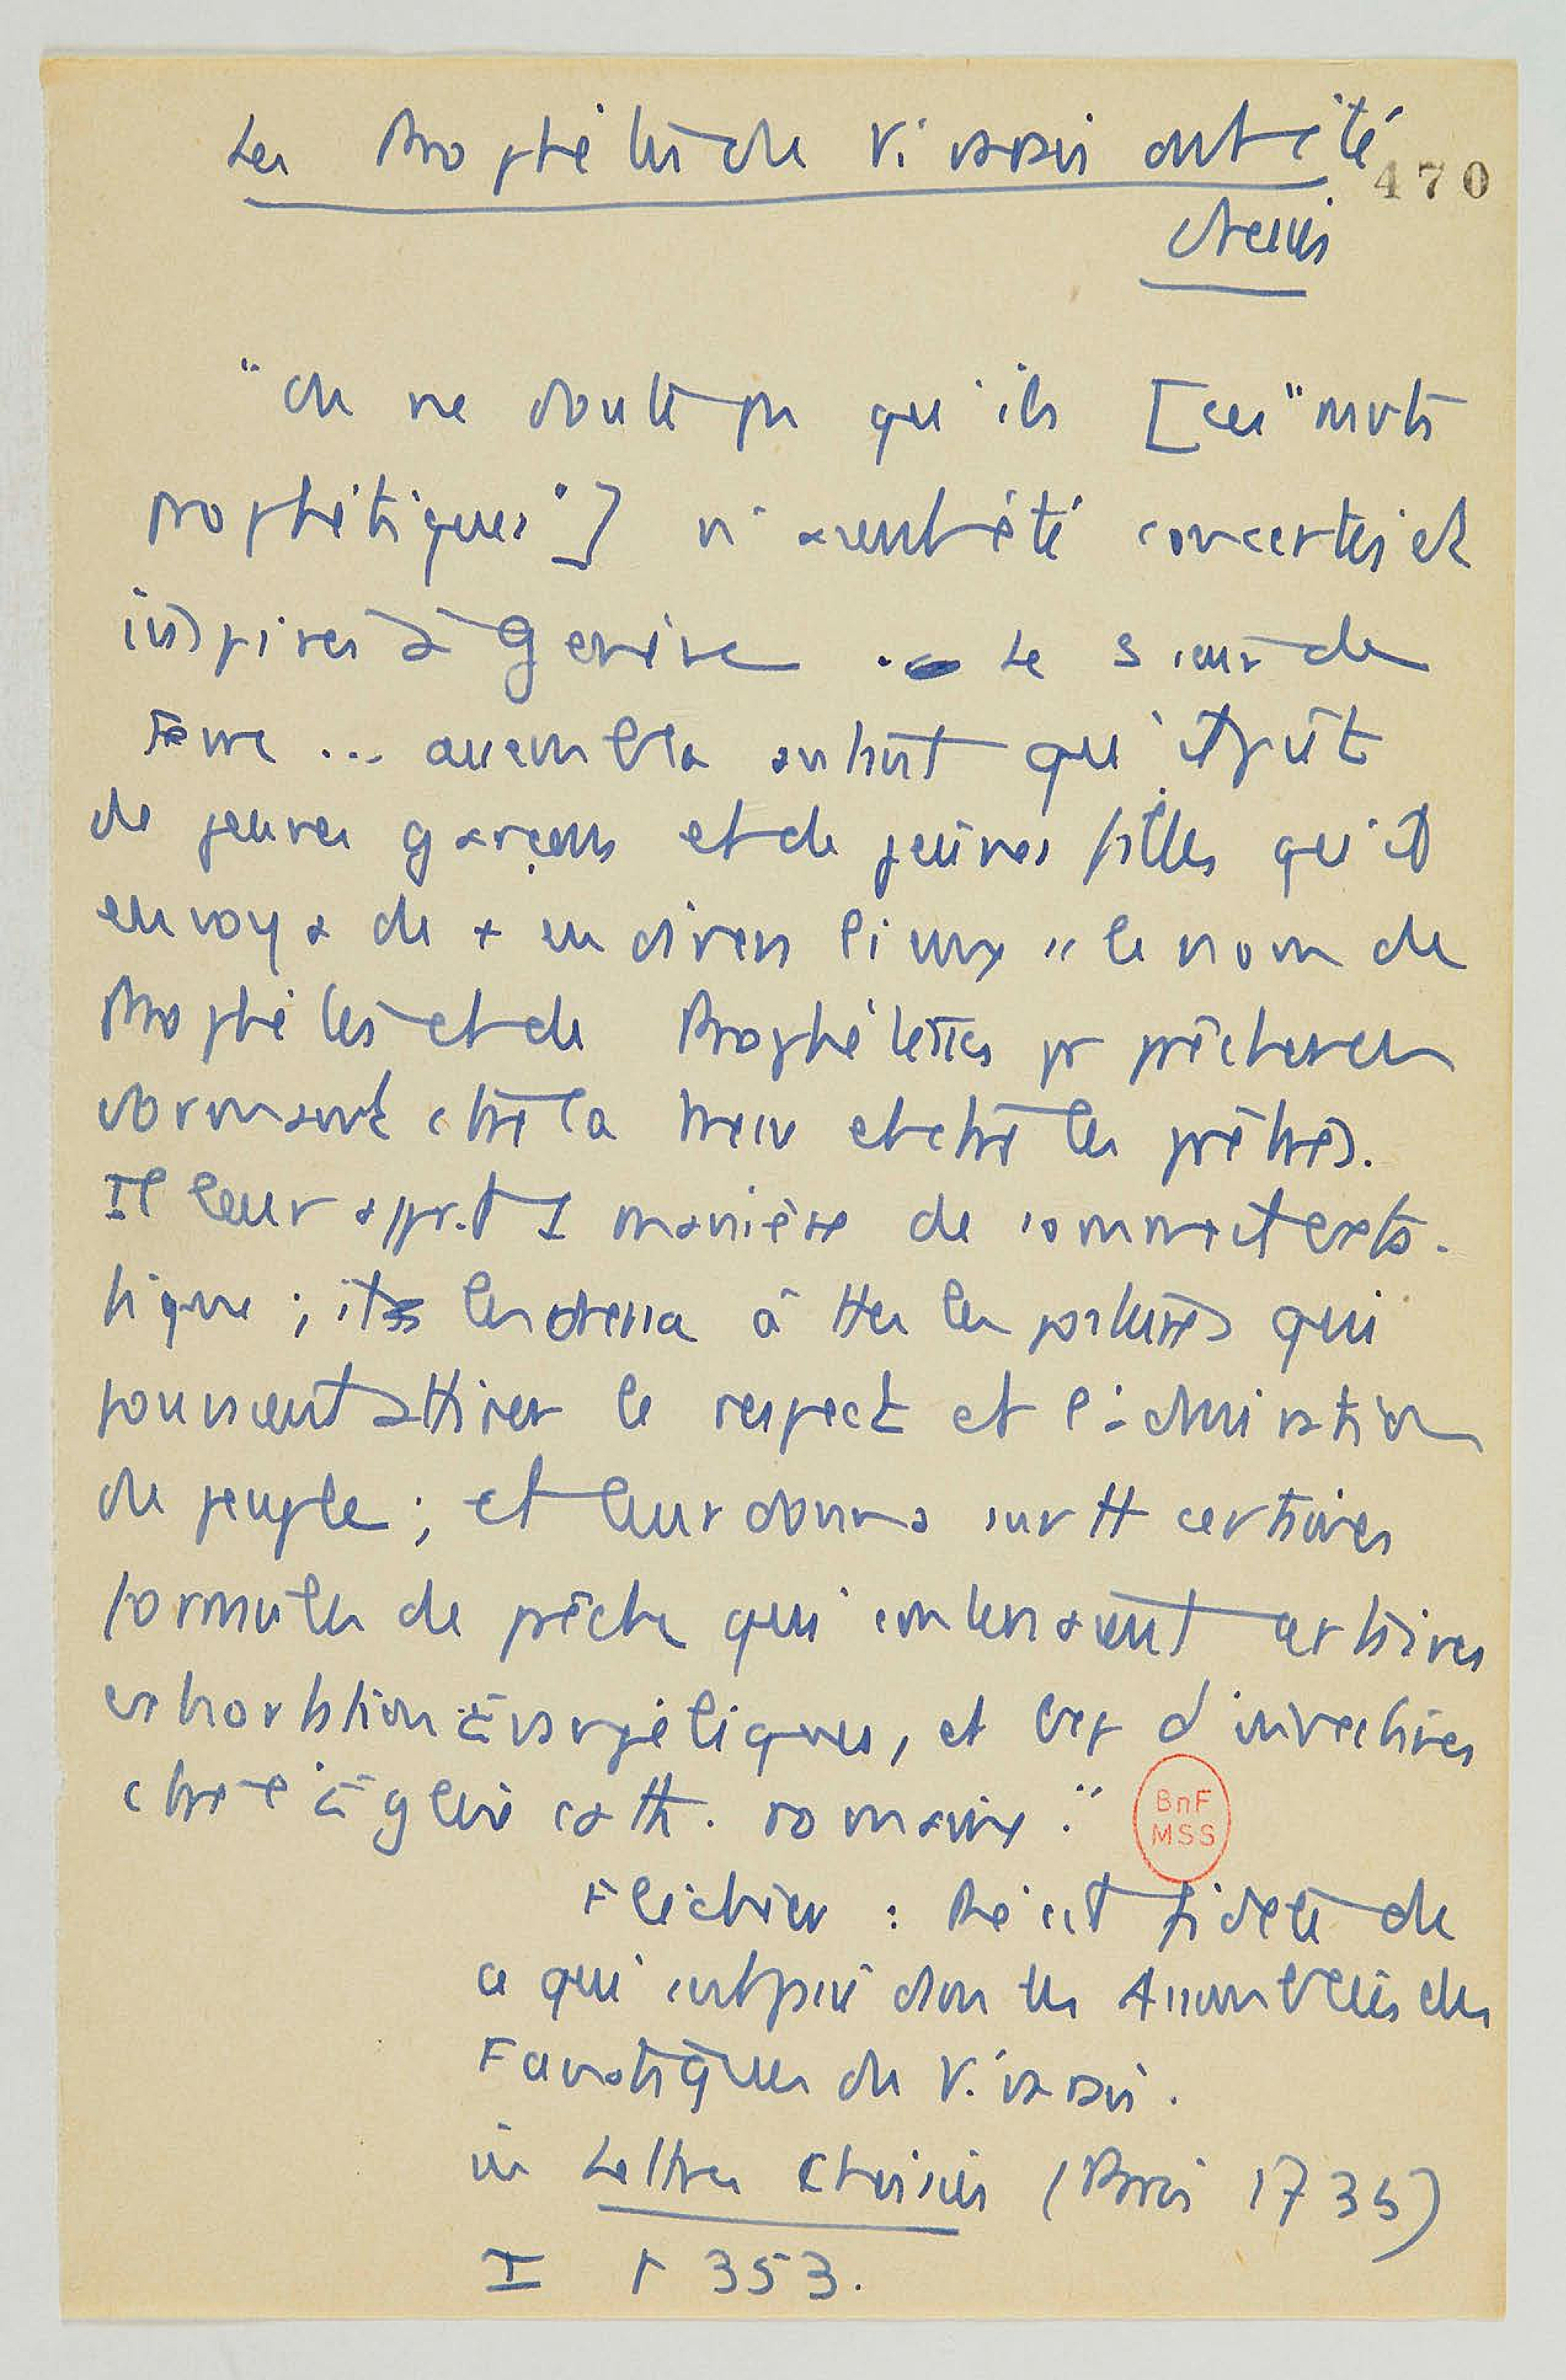 Les Prophètes du Vivarais ont été
470
dressés
"On ne doute pas qu'ils [ces "mots
prophétiques"] n'aient été concertés et
inspirés à Genève ... Le Sieur de
... assembla autant qu'il put
de jeunes garçons et de jeunes filles qu'il
envoya de + en divers lieux " le nom de
Prophètes et de Prophétesses pr prêcher en
dormant ctre la messe et ctre les prêtres.
Il leur apprit 1 manière de sommeil exta-
tique ; il les dressa à ttes les postures qui
pouvaient attirer le respect et l'admiration
du peuple ; et leur donna surtt certaines
formules de prêche qui contenaient certaines
exhortations évangéliques, et bcp d'invectives
ctre l'Église cath. romaine."
BnF
MSS
Fléchier : Récit fidèle de
ce qui s'est passé dans les Assemblées des
Fanatiques du Vivarais.
in Lettres choisies (Paris 1735)
I p 353.